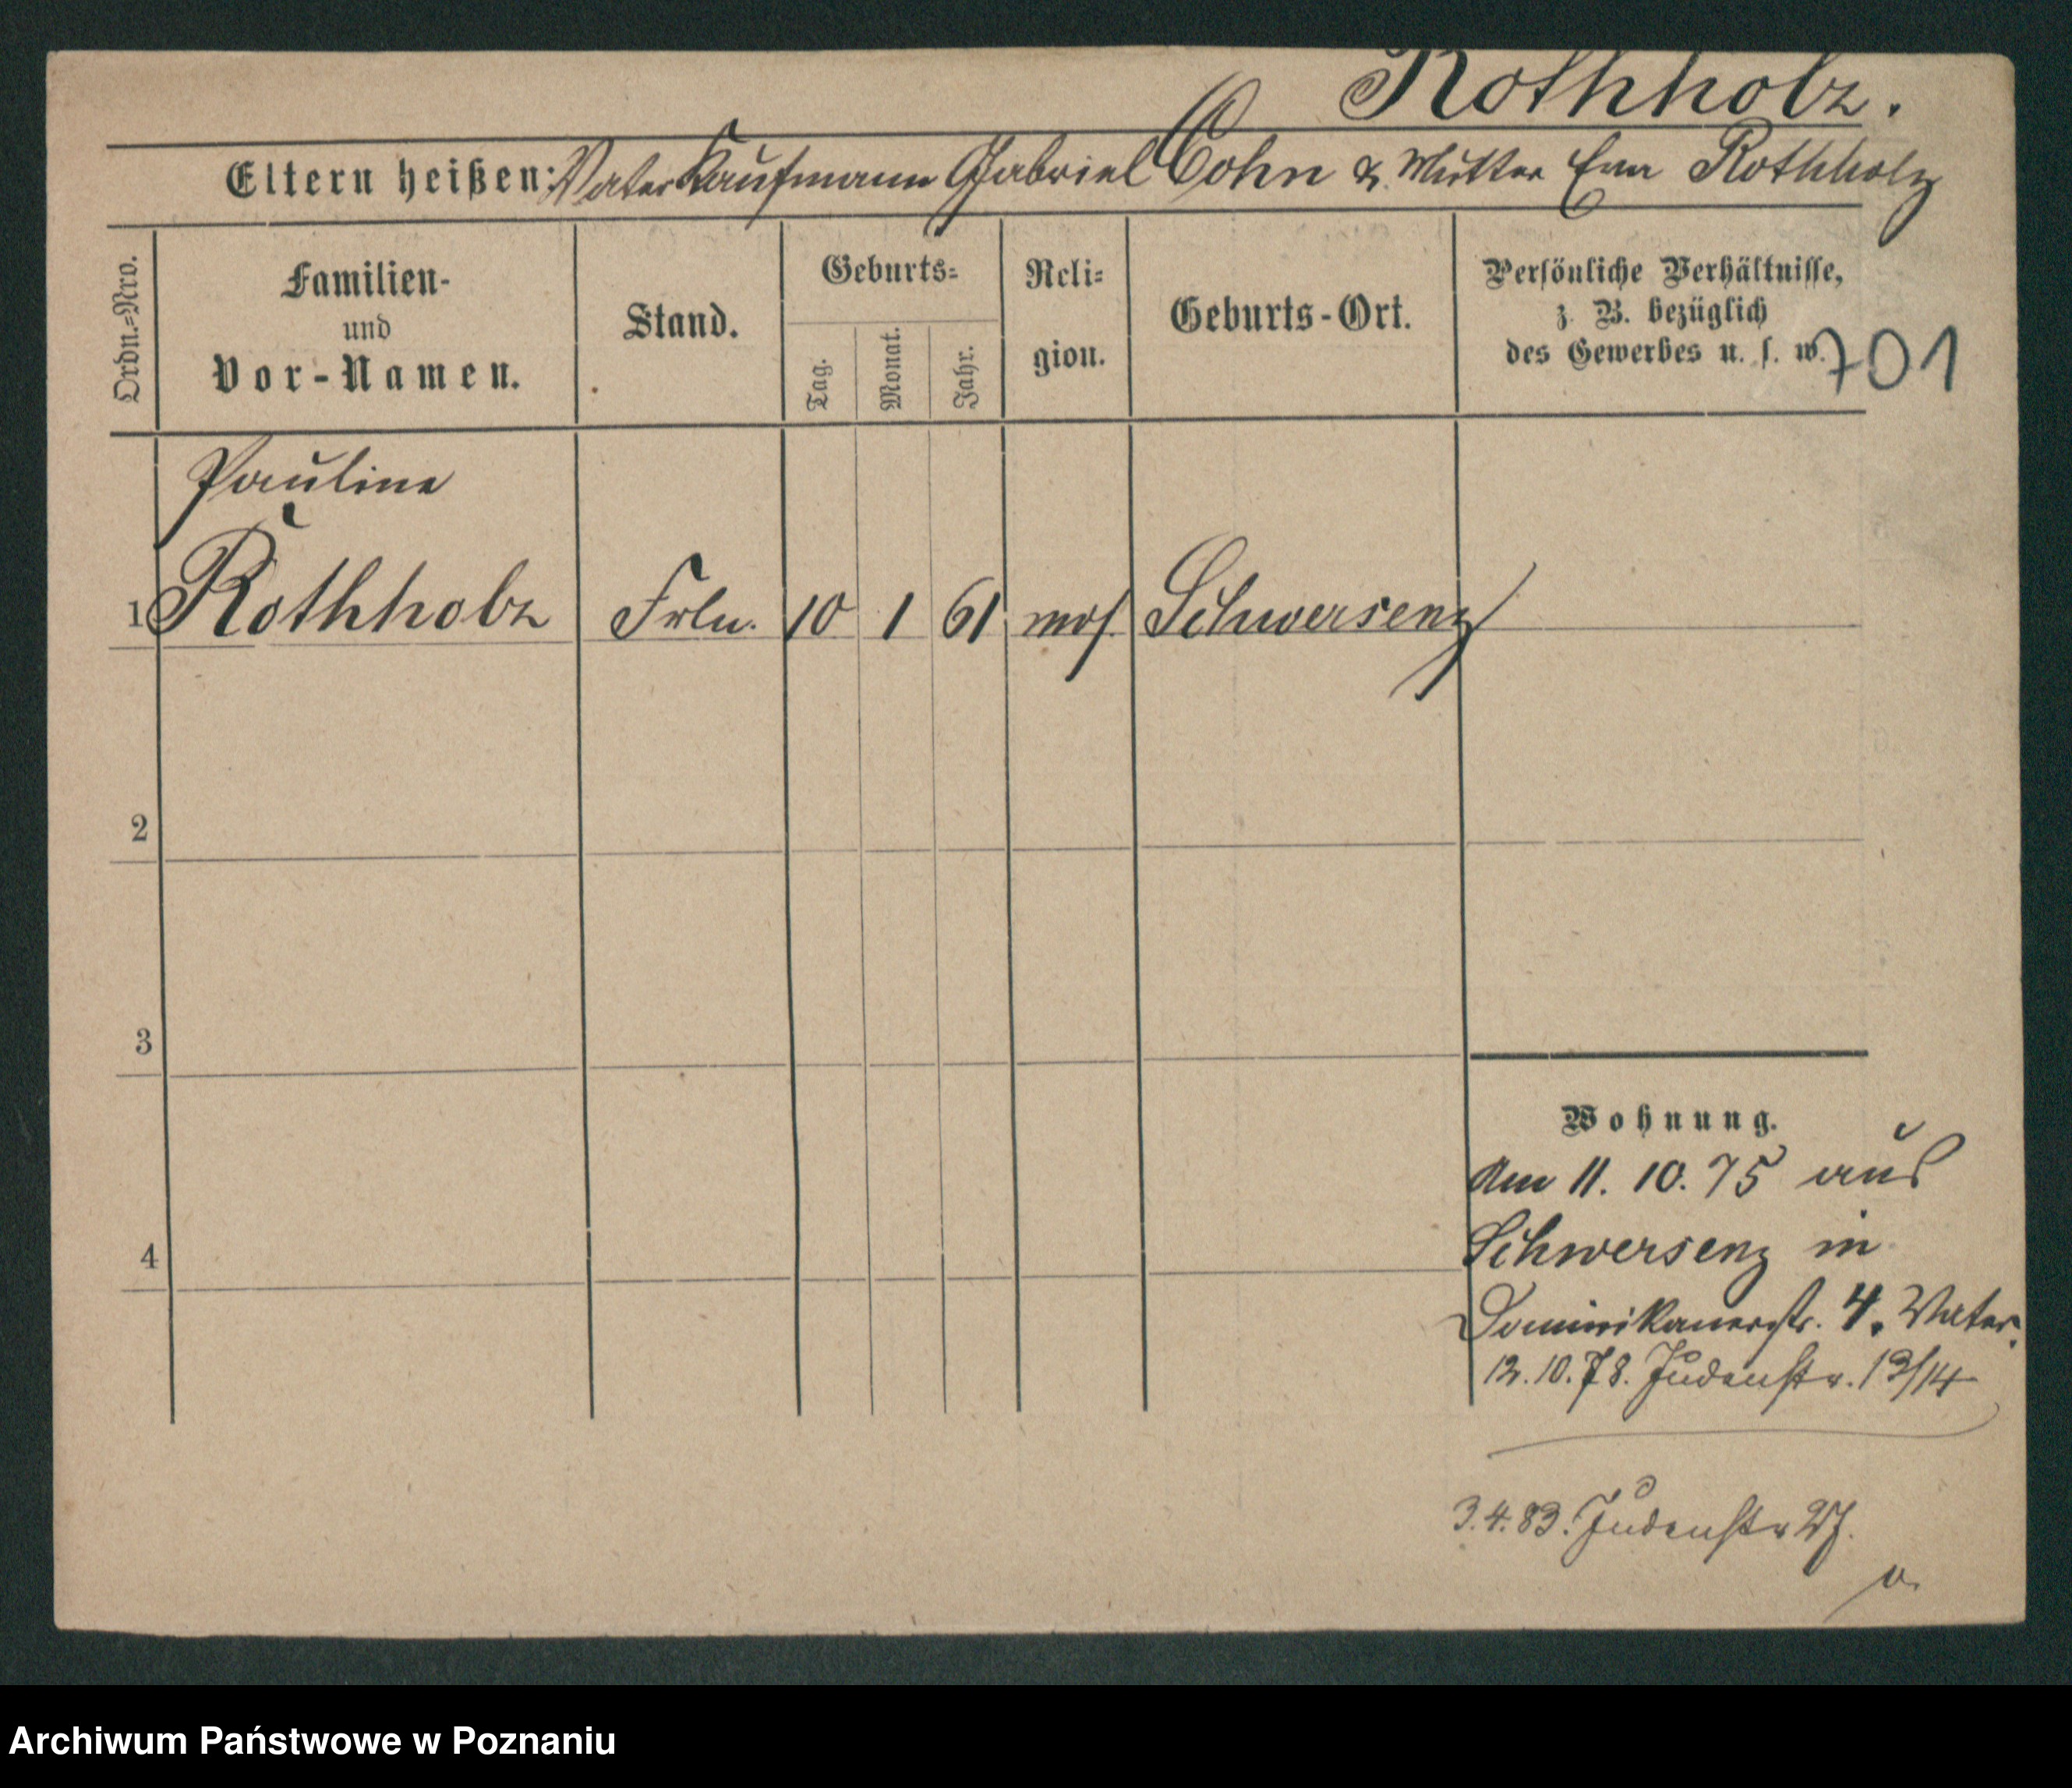 Rothholz.
Eltern heißen: Vater Kaufmann Gabriel Cohn & Mutter Eva Rothholz
Ordn.=Nro.
Familien-
und
Vor-Namen.
Stand.
Geburts=
Tag.
Monat.
Jahr.
Reli=
gion.
Geburts-Ort.
Persönliche Verhältnisse,
z. B. bezüglich
des Gewerbes u. s. w.
701
Pauline
1 Rothholz Frln. 10 1 61 mos. Schwersenz
2
3
4
Wohnung.
Am 11. 10. 75 aus
Schwersenz in
Dominikanerstr. 4. Vater.
12. 10. 78. Judenstr. 13/14
3. 4. 83. Judenstr 27.
v.
Archiwum Państwowe w Poznaniu